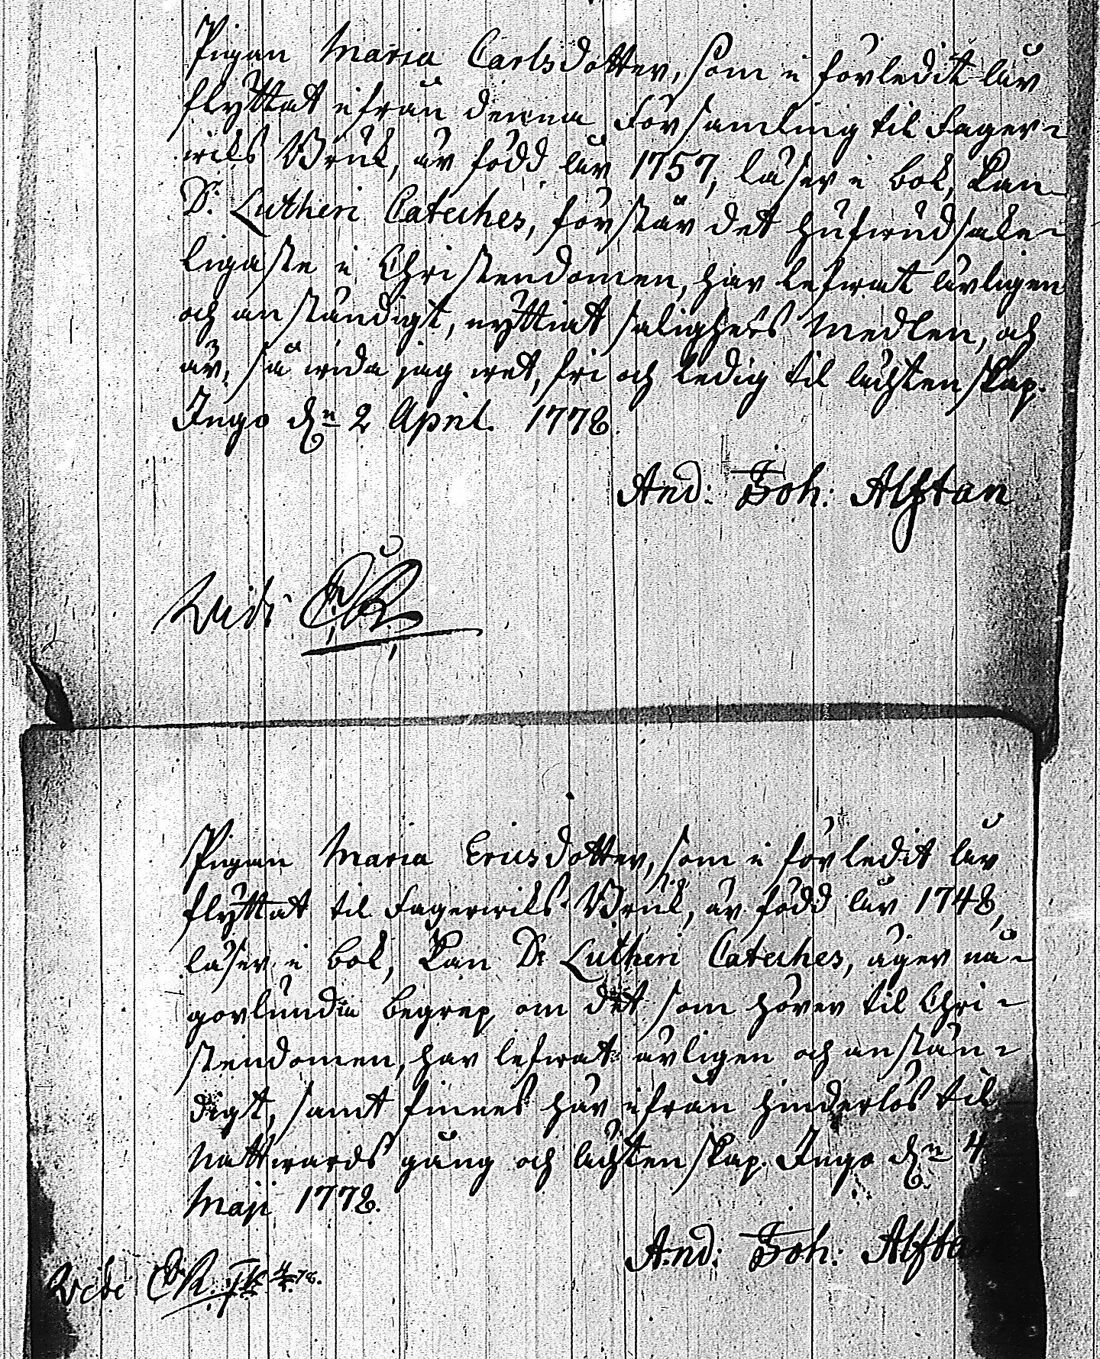 Pigan Maria Carlsdotter, som i förledit åhr
flyttat ifrån denna Församling til Fager-
wiks Bruk, är född åhr 1757, läser i bok, kan
Dr. Lutheri Cateches, förstår det hufwudsake-
ligaste i Christendomen, har lefwat ärligen
och anständigt, nyttiat salighets medlen, och
är, så wida jag wet, fri och ledig til ächtenskap.
Ingo den 2 April 1778.
And: Joh: Alftan
Vidi
Pigan Maria Ericsdotter, som i förledit åhr
flyttat til Fagerwiks Bruk, är född åhr 1748,
läser i bok, kan Dr Lutheri Cateches, äger nå-
gorlunda begrep om det som hörer til Chri-
stendomen, har lefwat ärligen och anstän-
digt, samt finnes här ifrån hinderlös til
Nattwards gång och ächtenskap. Ingo den 4
Maji 1778.
And: Joh: Alfta
Vidi